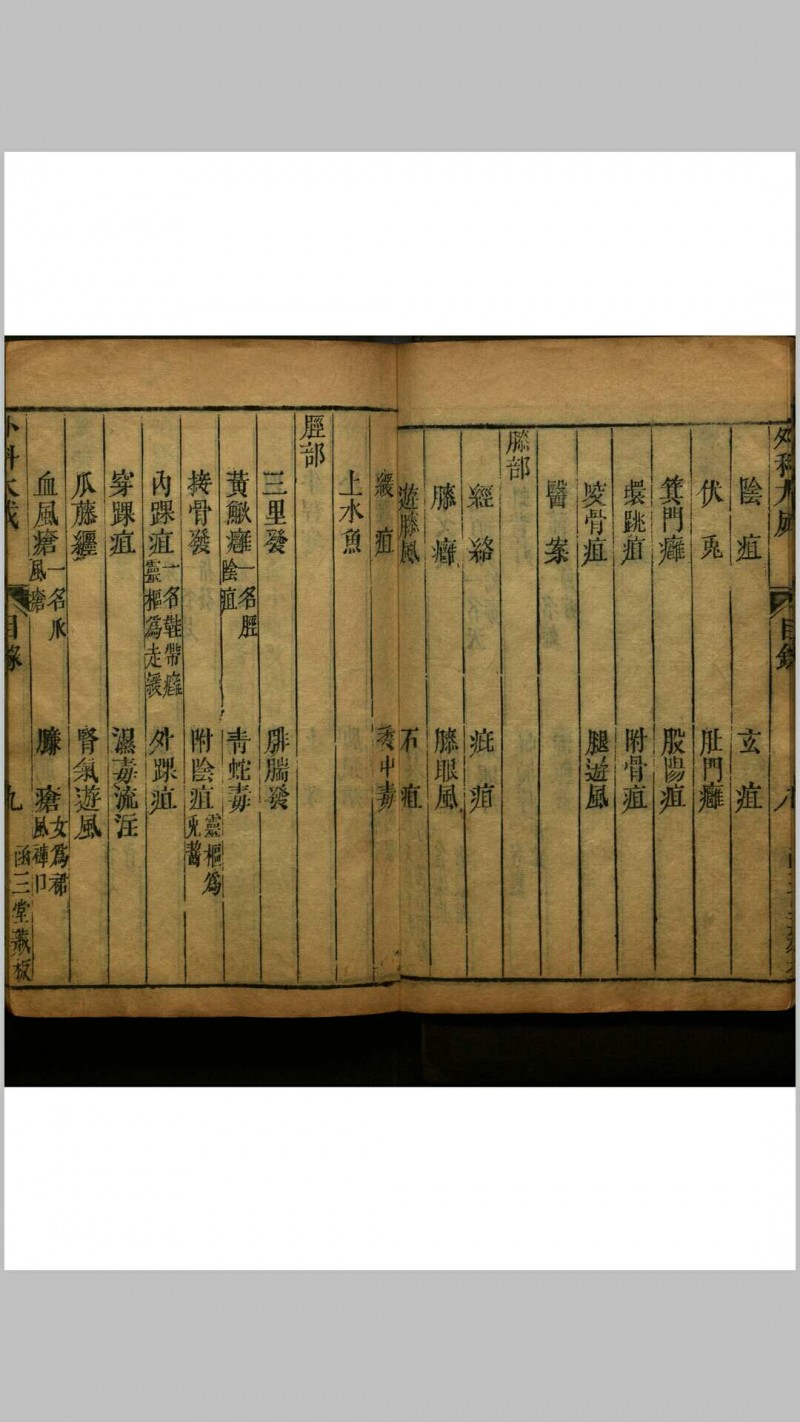 外科大成 目錄 八
陰疽 玄疽
伏兎 肚門癰
箕門癰 股陽疽
環跳疽 附骨疽
咬骨疽 腿遊風
醫案
膝部
經絡 疵疽
膝癰 膝眼風
遊膝風 石疽
緩疽 委中毒
上水魚
脛部
三里發 腓腨發
黃鰍癰一名脛陰疽 青蛇毒
接骨發 附陰疽靈樞爲兎齧
內踝疽一名鞋帶癰靈樞爲走緩 外踝疽
穿踝疽 濕毒流注
瓜藤纏 腎氣遊風
血風瘡一名爪風瘡 臁瘡女爲裙風褲口
外科大成 目錄 九 函三堂藏板